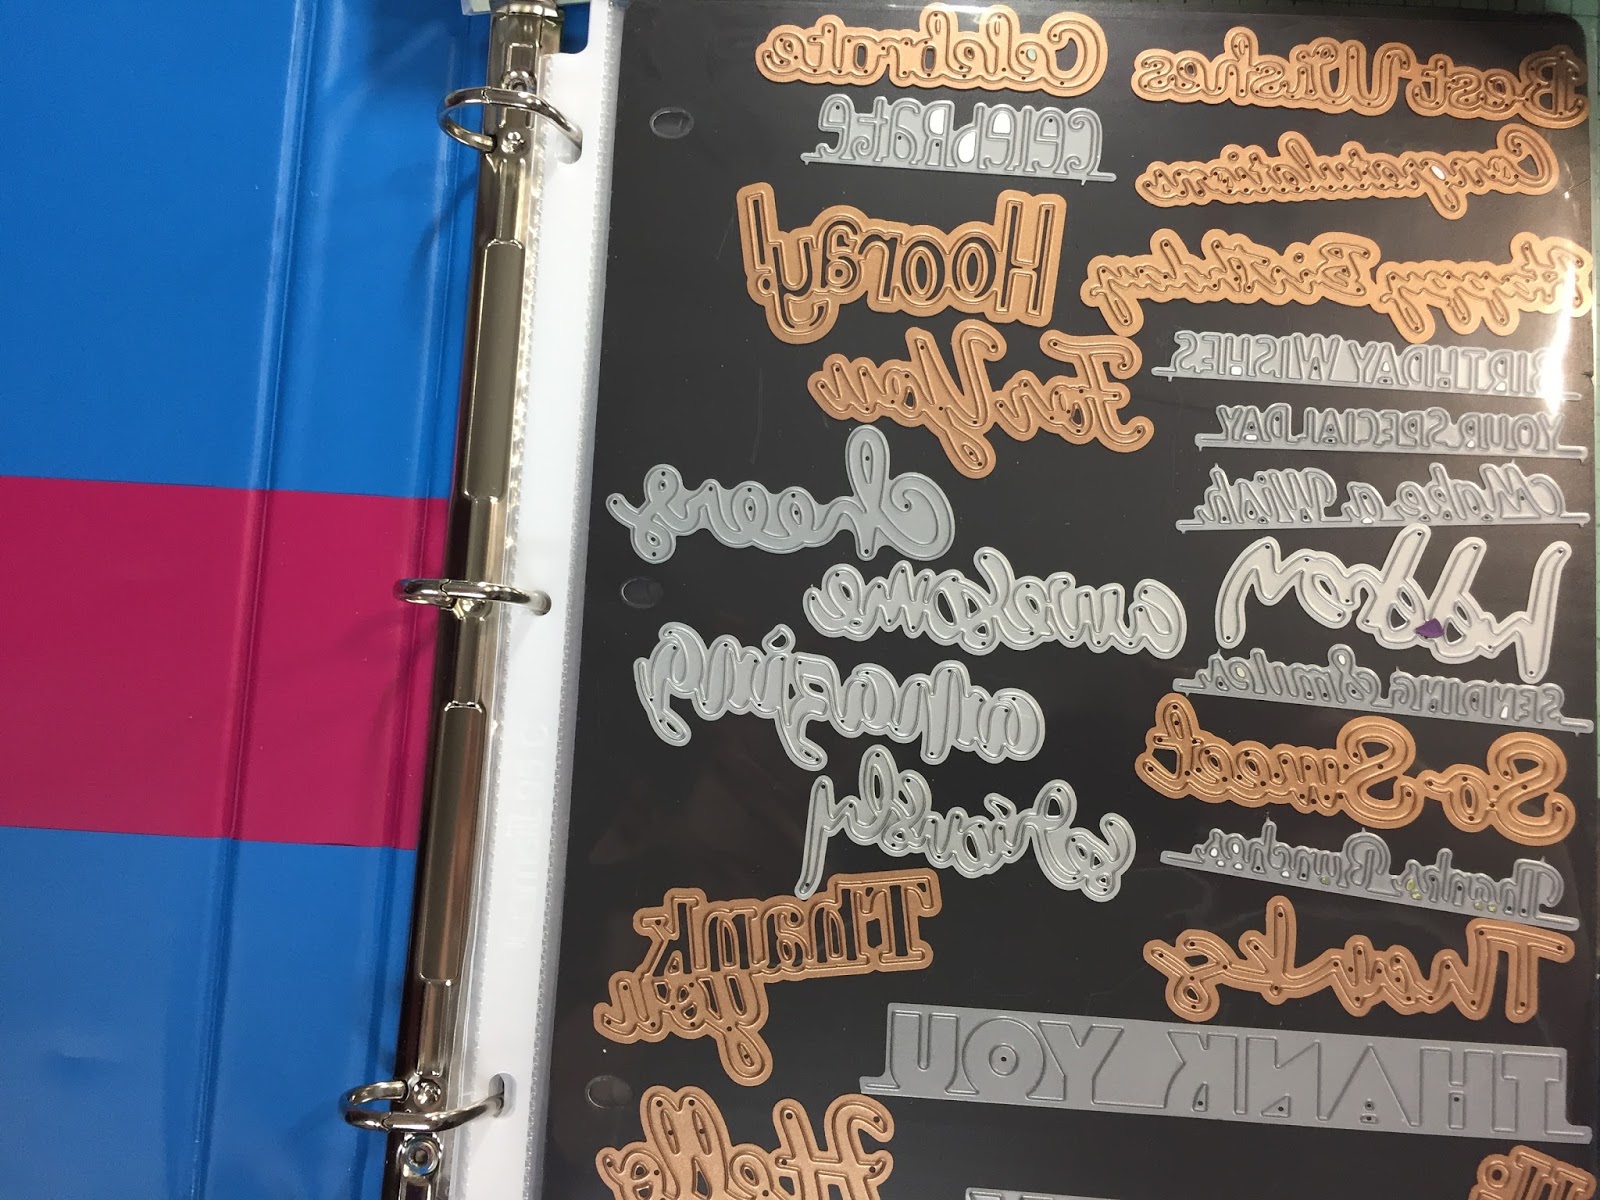 Best Wishes
Celebrate
celebRate
Congratulations
Hooray!
Happy Birthday
For You
BIRTHDAY WISHES
YOUR SPECIAL DAY
cheers
Make a Wish
awesome
amazing
SENDING Smiles
So Sweet
seriously
Thanks Bunches
Thank
you
Thanks
THANK YOU
Hello